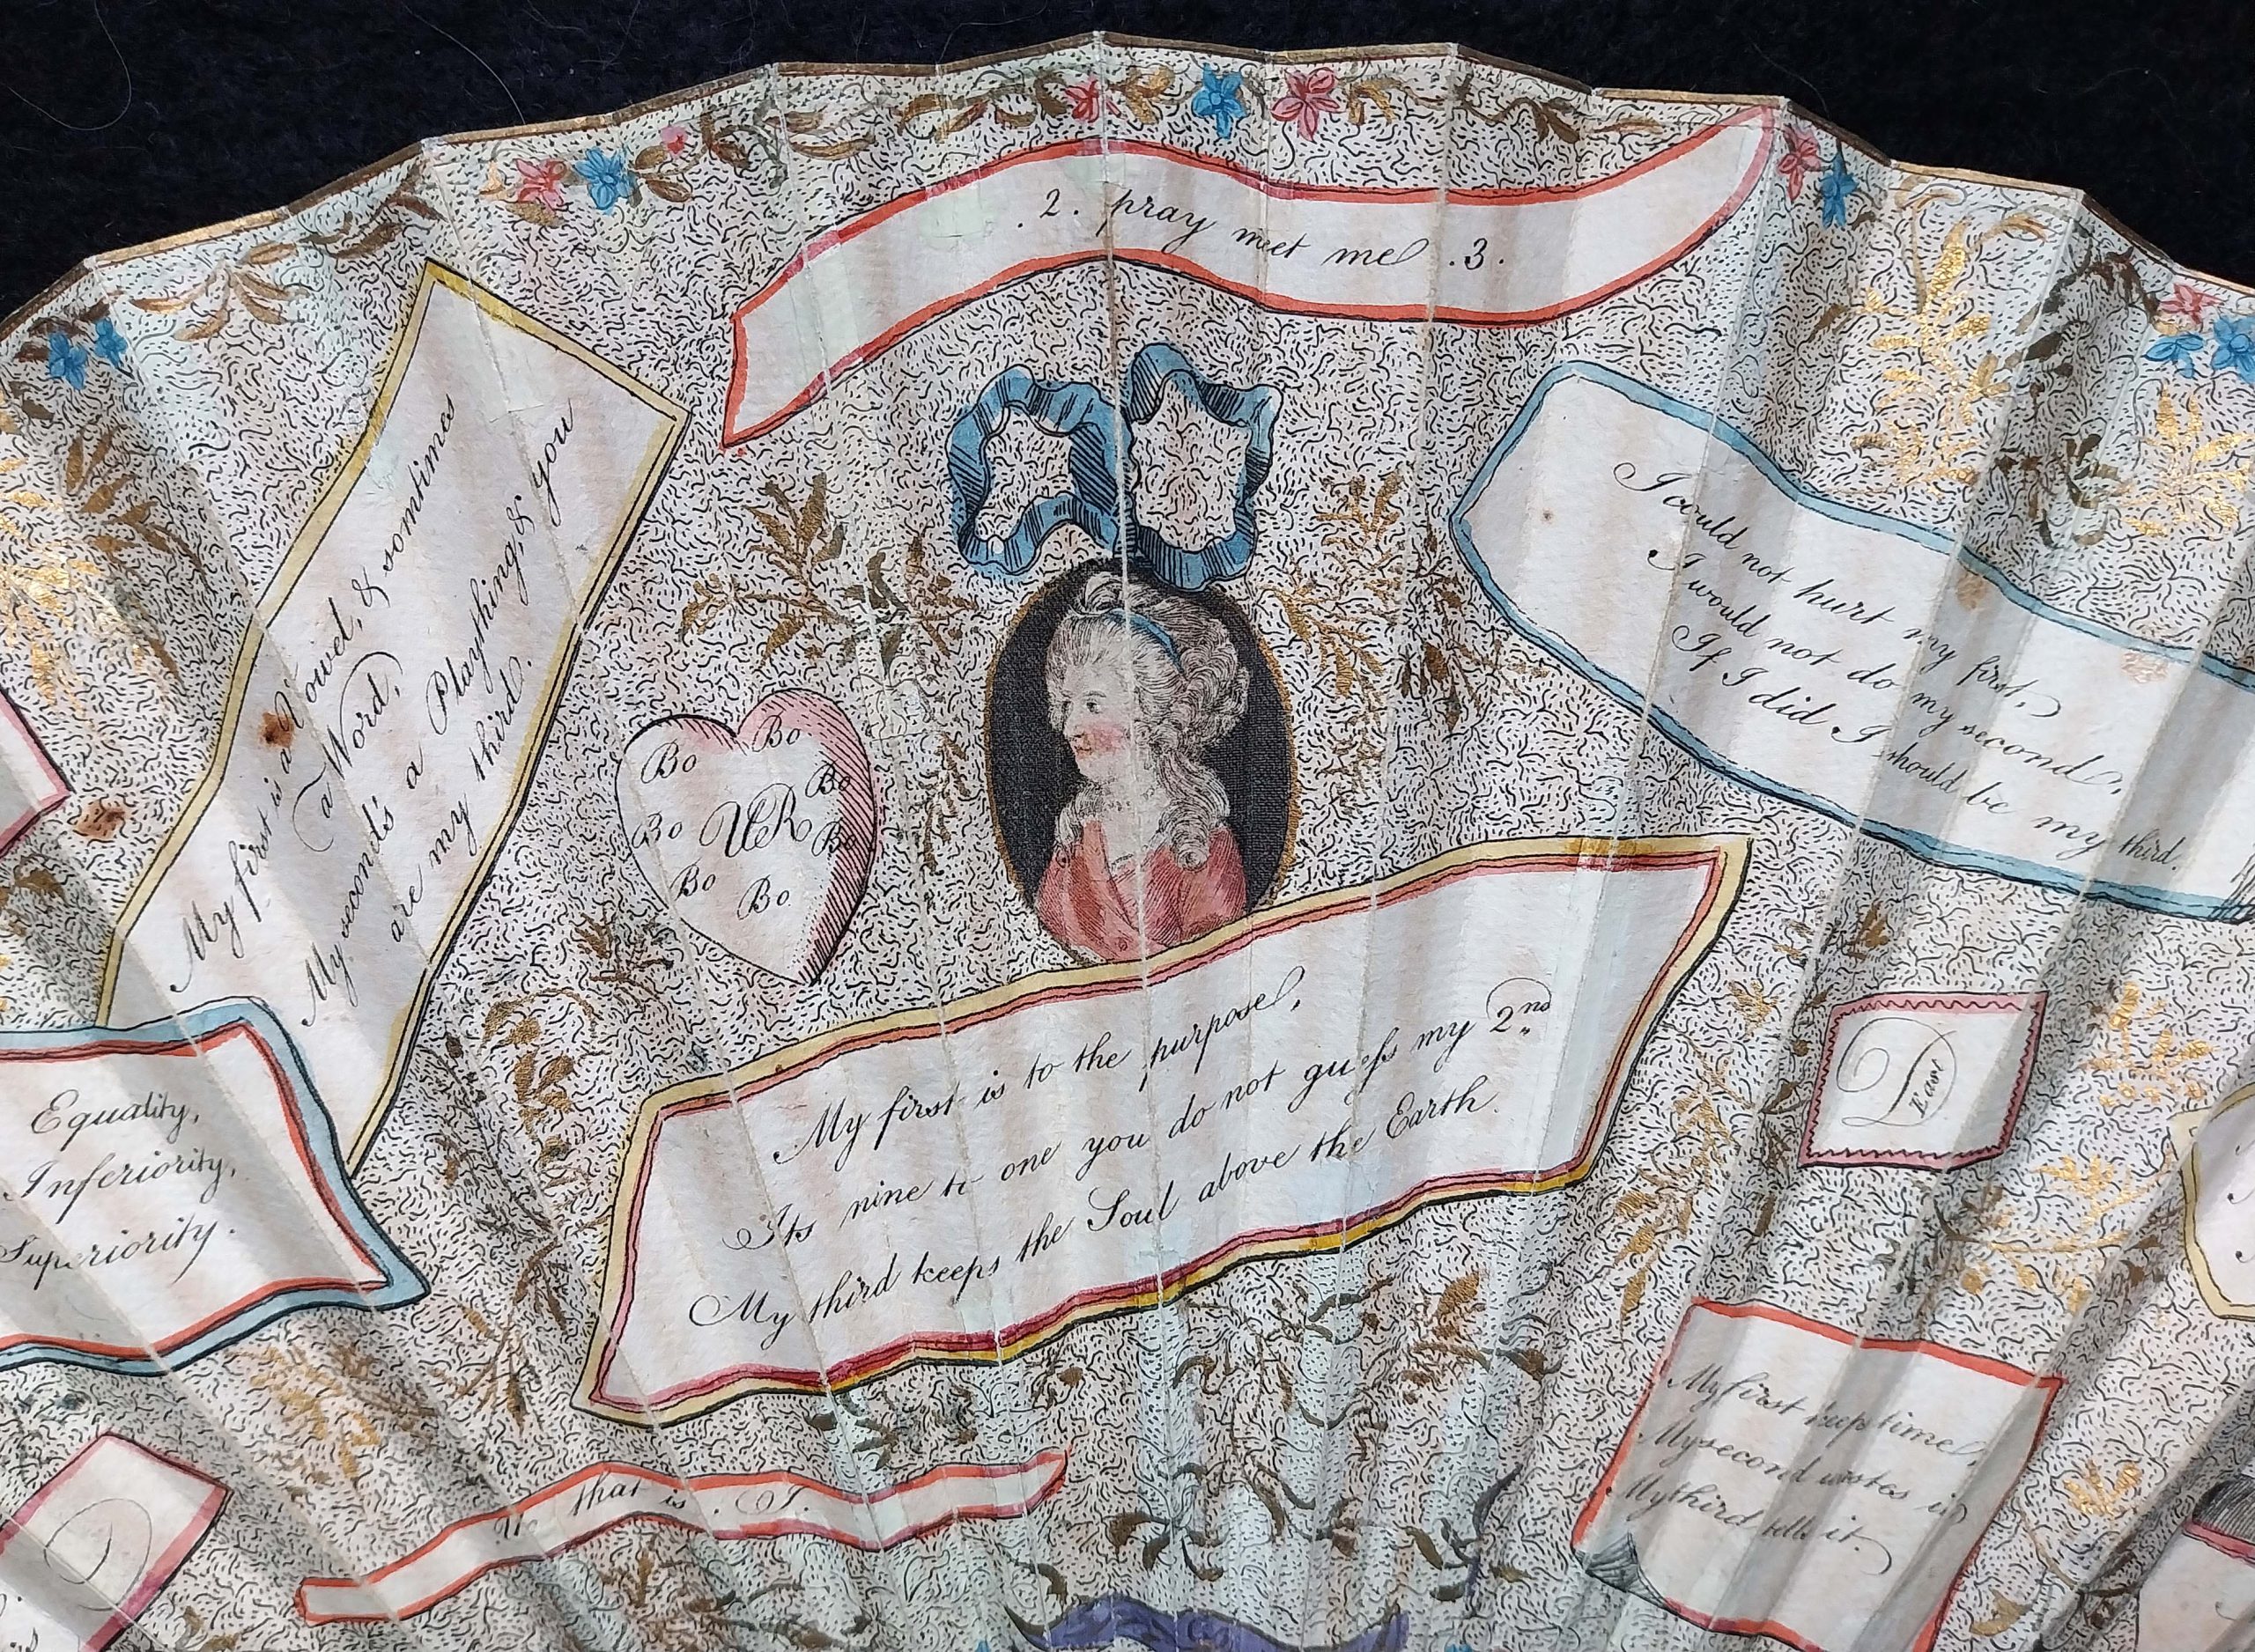 .2. pray meet me .3.
My first is a Vowel, & somtimes
a Word,
My second's a Plaything, & you
are my third.
I could not hurt my first,
I would not do my second,
If I did I should be my third.
Bo
Bo
Bo
Bo
UR
Bo
Bo
Bo
My first is to the purpose,
Its nine to one you do not guess my 2nd
My third keeps the Soul above the Earth.
D
East
Equality,
Inferiority,
Superiority.
My first keeps time,
My second wastes it
My third tells it.
that is . I.